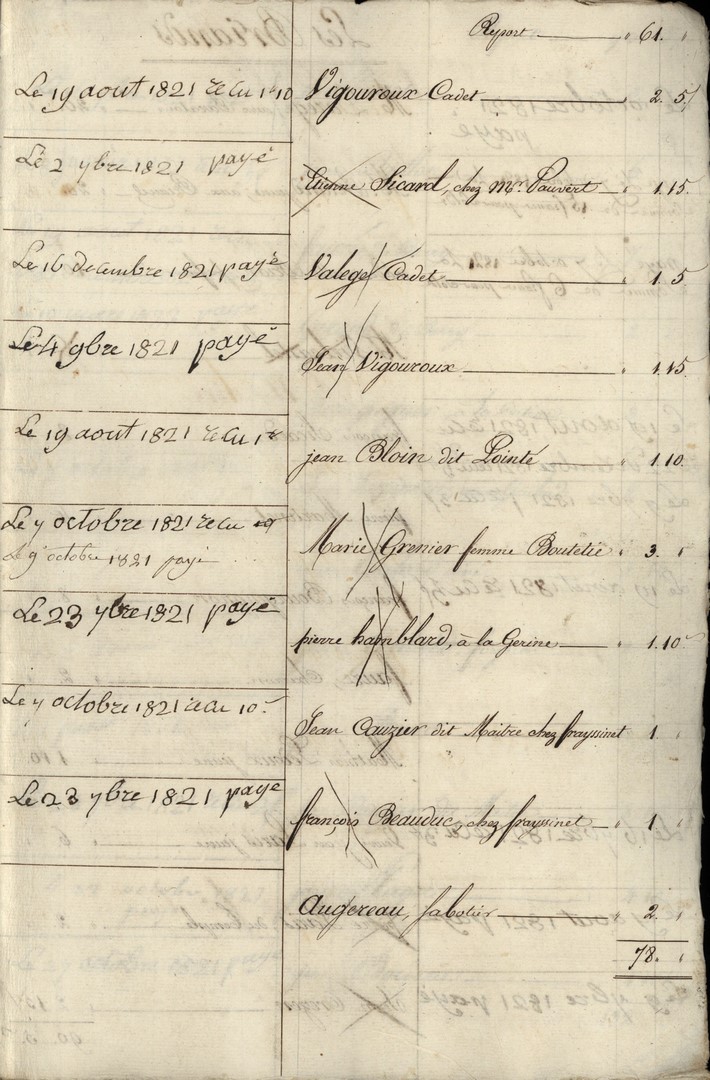 Report — " 61. "
Le 19 aout 1821 recu 1# 10 Vigouroux Cadet — 2. 5.
Le 2 7bre 1821 payé
Etienne Sicard, chez Mr. Pauvert — " 1. 15.
Le 16 decembre 1821 payé Valege Cadet — " 1. 5
Le 4 9bre 1821 payé
Jean Vigouroux — " 1. 15.
Le 19 aout 1821 recu 1#
jean Bloin dit Pointé " 1. 10.
Le 7 octobre 1821 recu
Le 9 octobre 1821 payé
Marie Grenier femme Boutetié " 3. "
Le 23 7bre 1821 payé
pierre hamblard, à la Gerine — " 1. 10
Le 7 octobre 1821 recu 10s
Jean Cauzier dit Maitre chez frayssinet 1 "
Le 23 7bre 1821 payé
françois Beauduc, chez frayssinet — " 1 "
Augereau, sabotier — " 2. "
78. "